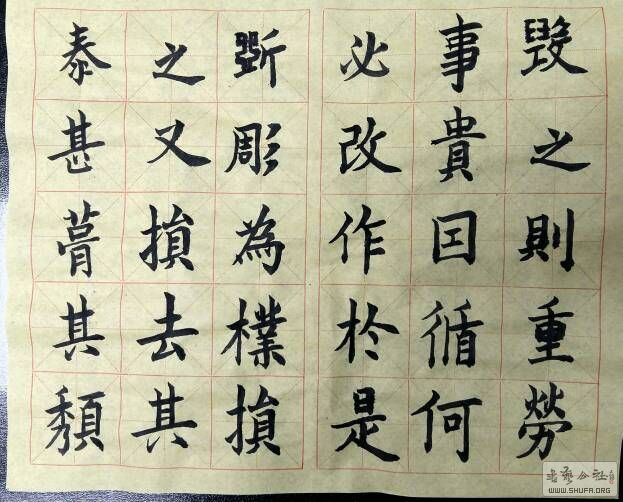 毀之則重勞
事貴囙循何
必改作於是
斲彫為樸損
之又損去其
泰甚葺其頹
书艺公社
WWW.SHUFA.ORG